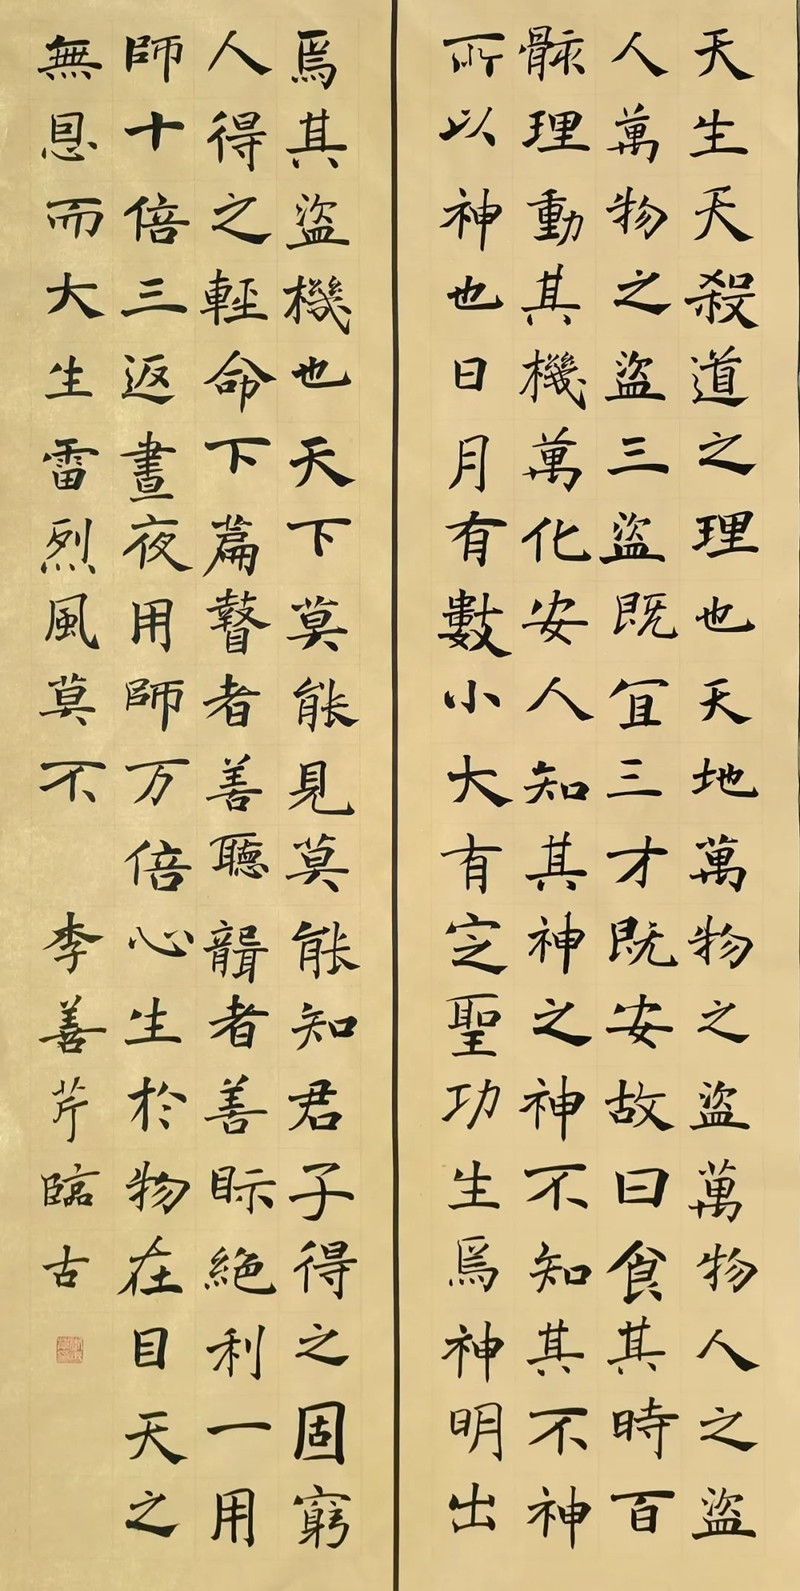 天生天殺道之理也天地萬物之盜萬物人之盜
人萬物之盜三盜既冝三才既安故曰食其時百
骸理動其機萬化安人知其神之神不知其不神
所以神也日月有數小大有㝎聖功生焉神明出
焉其盜機也天下莫能見莫能知君子得之固窮
人得之輕命下篇瞽者善聽聾者善眎絕利一用
師十倍三返晝夜用師万倍心生於物在目天之
無恩而大生雷烈風莫不 李善芹臨古